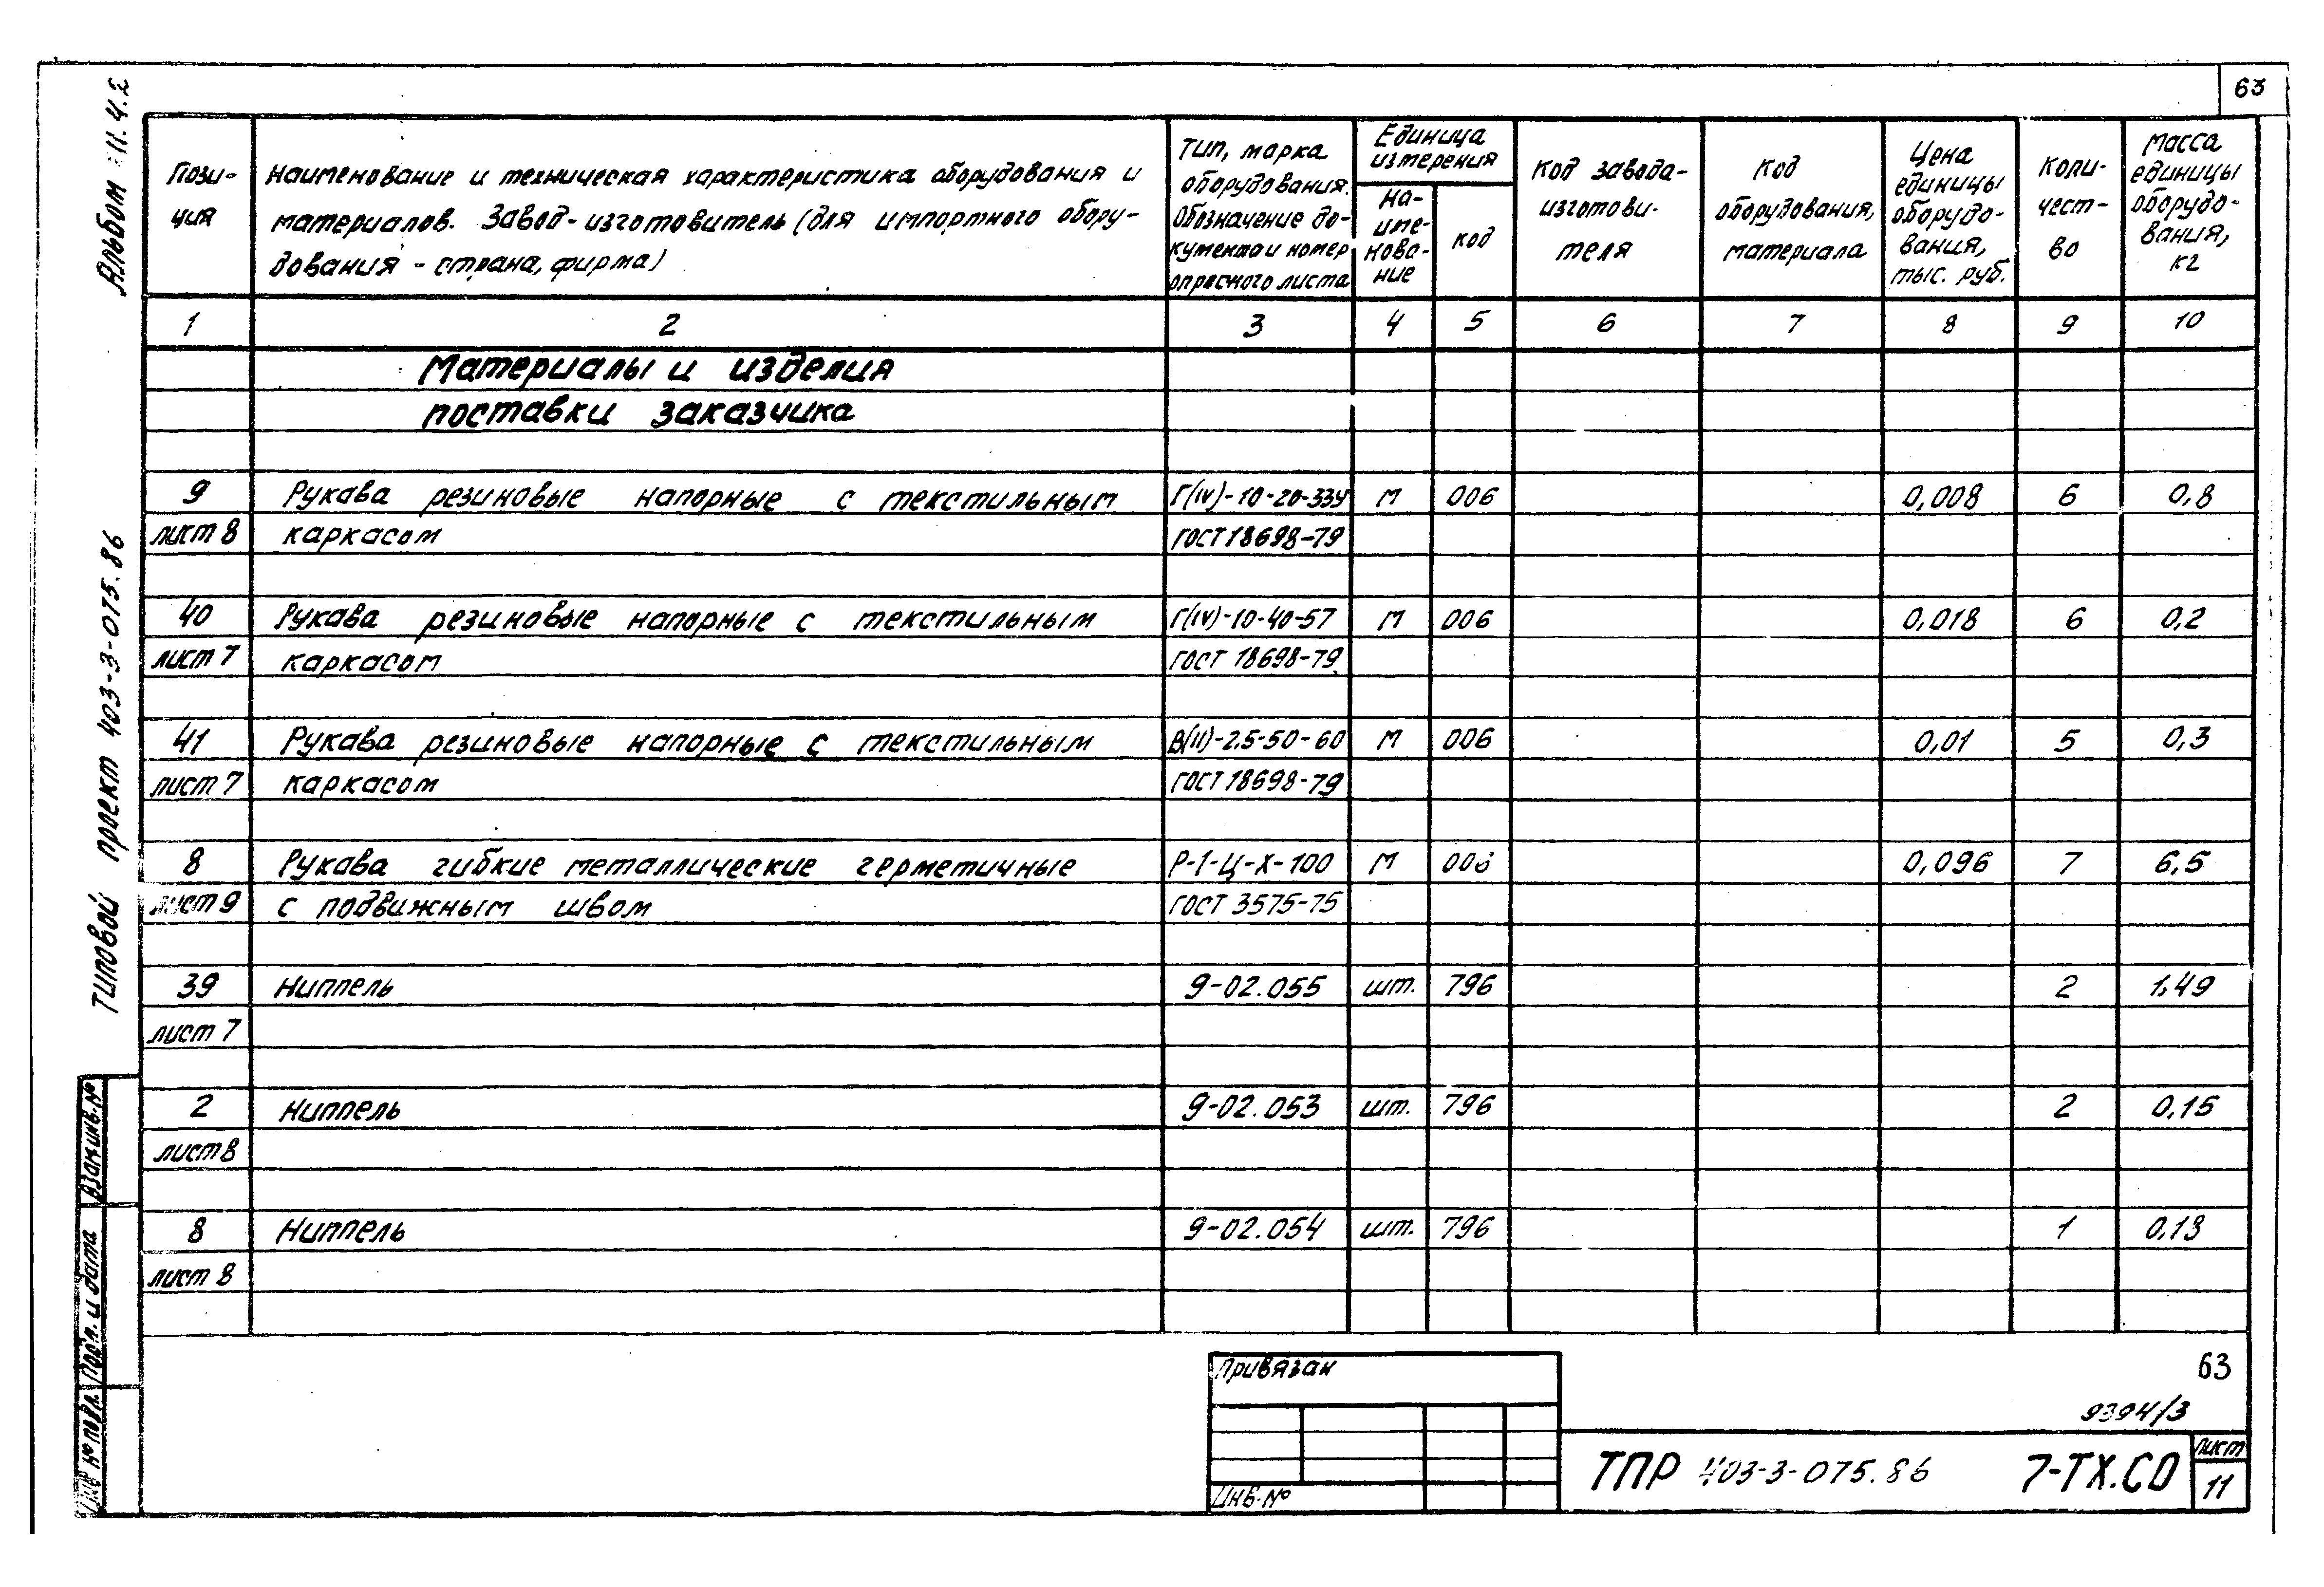 63
Альбом 11.4.2
Типовой проект 403-3-075.86
Пози-
ция
Наименование и техническая характеристика оборудования и
материалов. Завод-изготовитель (для импортного обору-
дования - страна, фирма)
Тип, марка
оборудования.
Обозначение до-
кумента и номер
опросного листа
Единица
измерения
На-
име-
нова-
ние
код
Код завода-
изготови-
теля
Код
оборудования,
материала
Цена
единицы
оборудо-
вания,
тыс. руб.
Коли-
чест-
во
Масса
единицы
оборудо-
вания,
кг
1 2 3 4 5 6 7 8 9 10
Материалы и изделия
поставки заказчика
9 Рукава резиновые напорные с текстильным Г(IV)-10-20-33У М 006 0,008 6 0,8
лист 8 каркасом ГОСТ 18698-79
40 Рукава резиновые напорные с текстильным Г(IV)-10-40-57 М 006 0,018 6 0,2
лист 7 каркасом ГОСТ 18698-79
41 Рукава резиновые напорные с текстильным В(II)-2.5-50-60 М 006 0,01 5 0,3
лист 7 каркасом ГОСТ 18698-79
8 Рукава гибкие металлические герметичные Р-1-Ц-Х-100 М 006 0,096 7 6,5
лист 9 с подвижным швом ГОСТ 3575-75
39 Ниппель 9-02.055 шт. 796 2 1,49
лист 7
2 Ниппель 9-02.053 шт. 796 2 0,15
лист 8
8 Ниппель 9-02.054 шт. 796 1 0,13
лист 8
Взам.инв.№
Подп. и дата
Инв № подл.
Привязан
Инв.№
63
9394/3
ТПР 403-3-075.86 7-ТХ.СО
лист
11